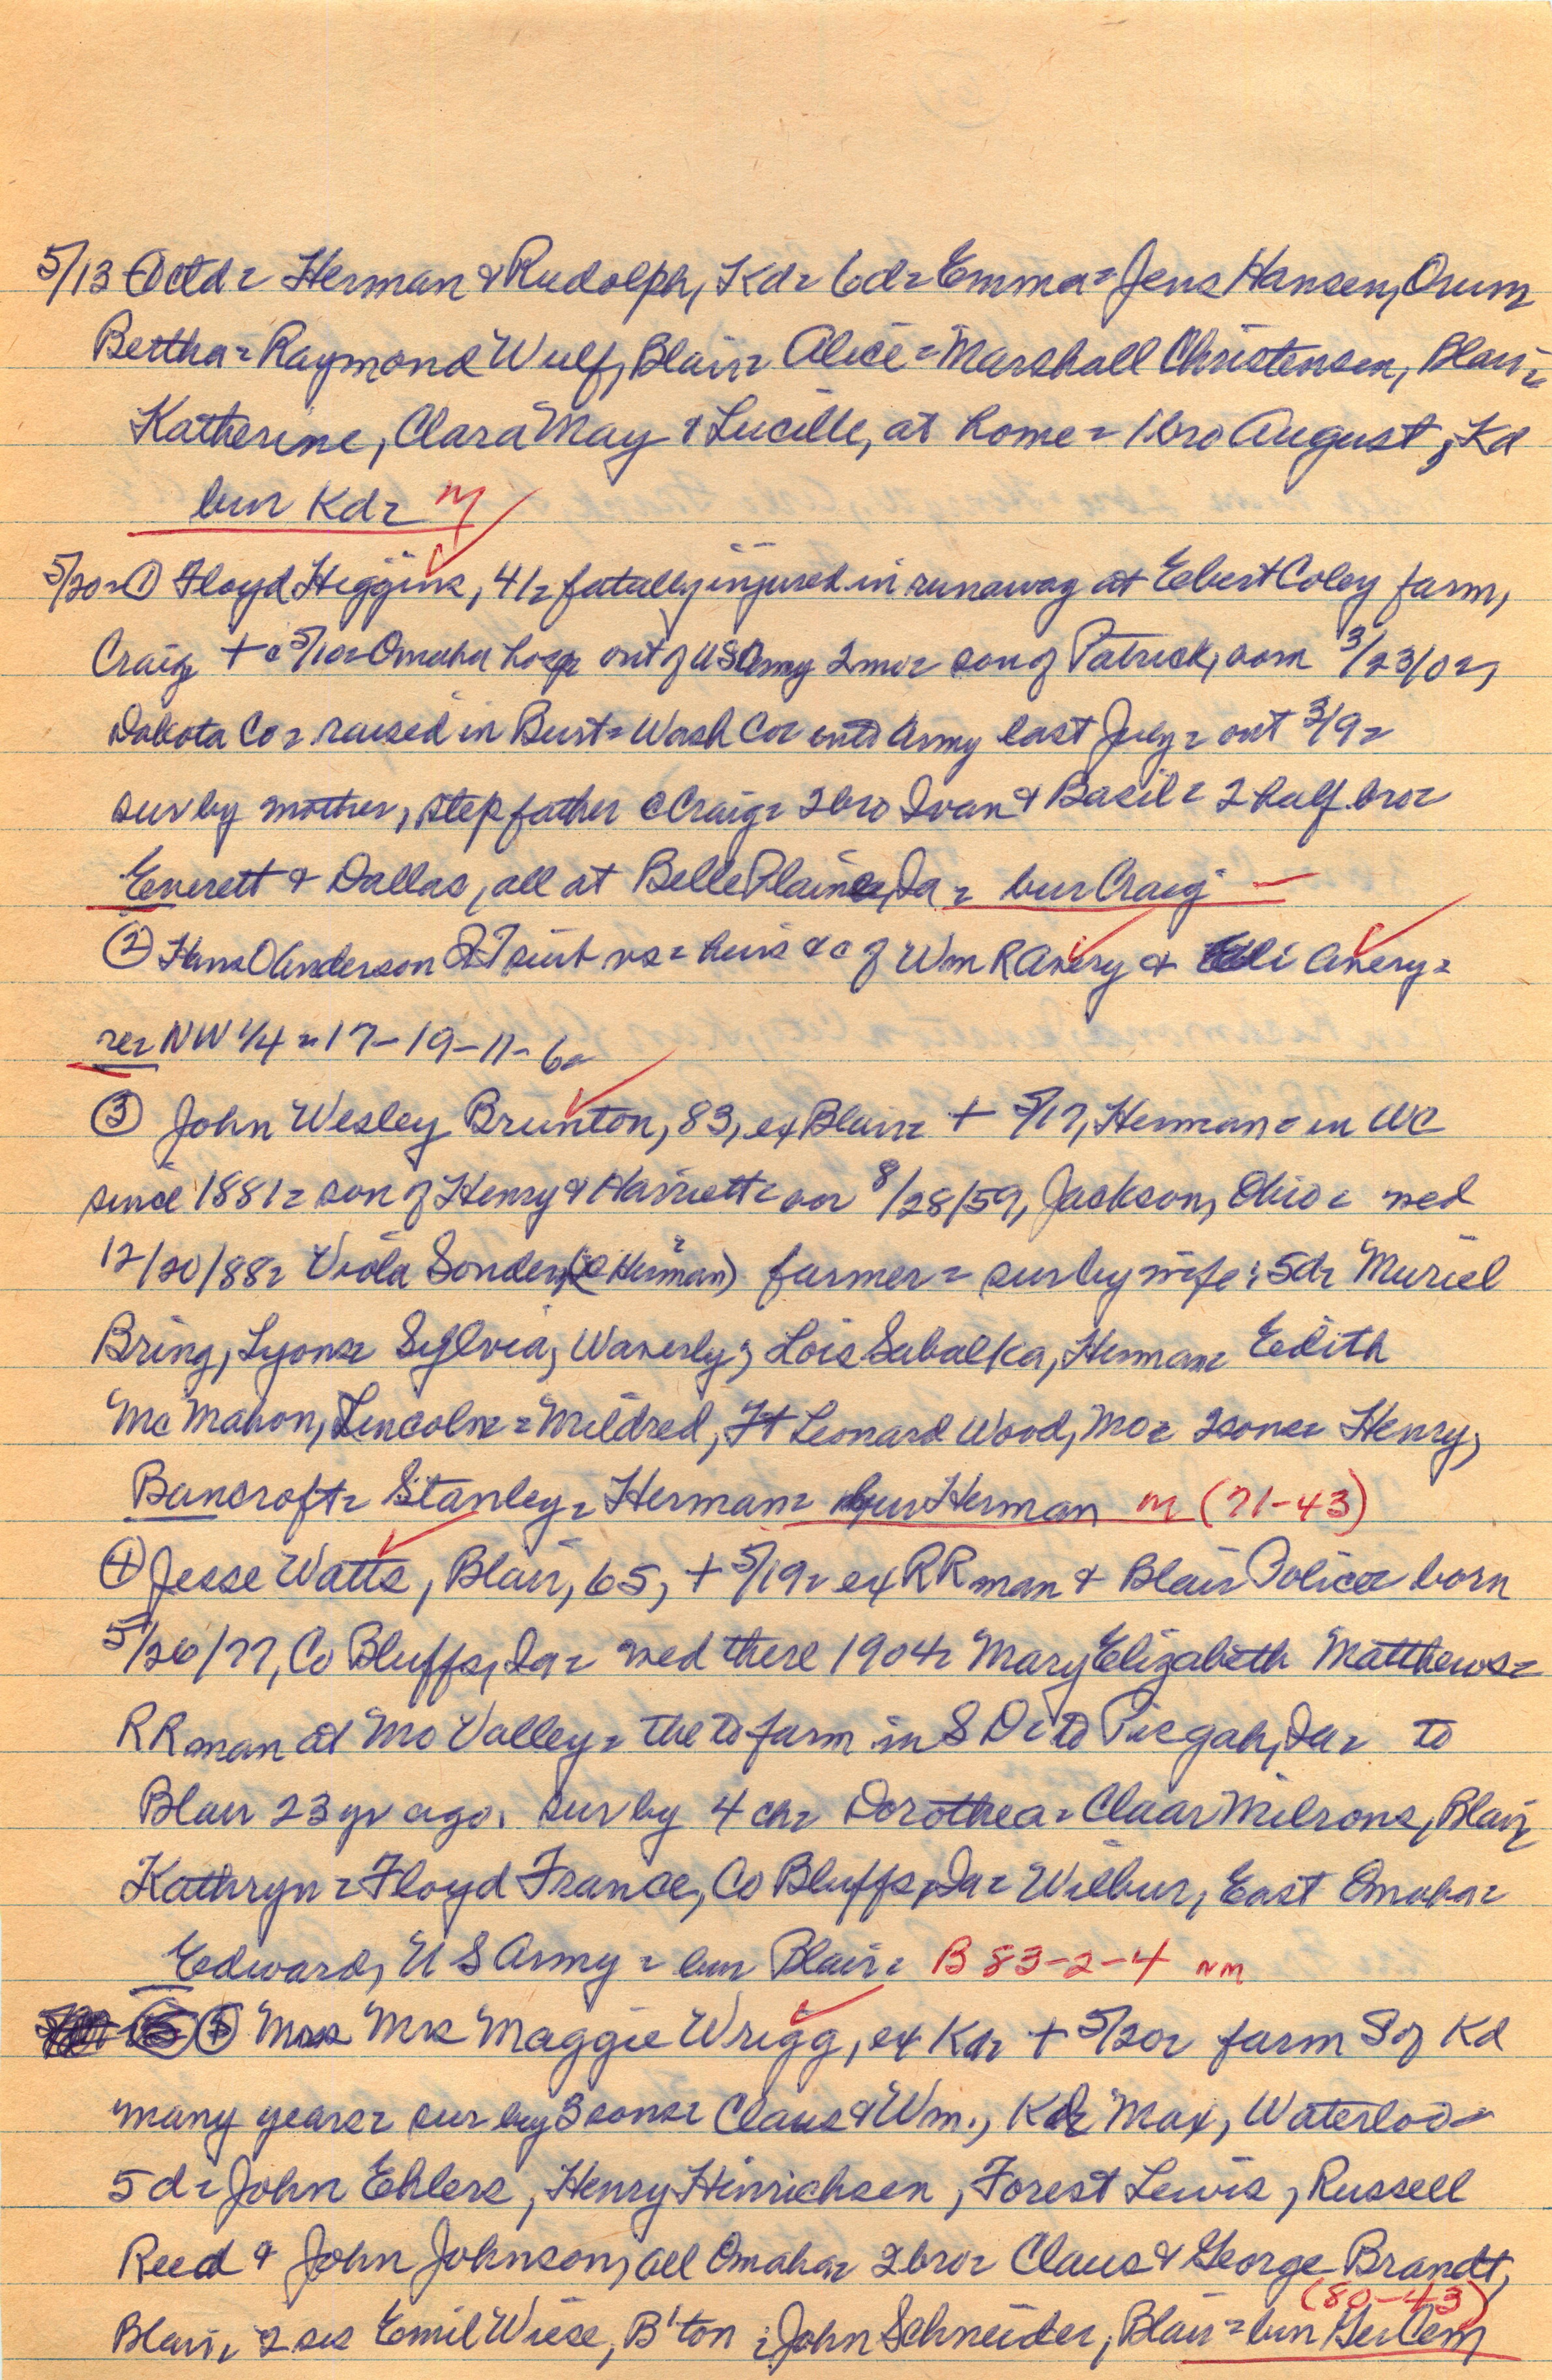 5/13 Octd= Herman & Rudolph, Kd= 6d= Emma= Jens Hansen, Orum
Bertha= Raymond Wulf, Blair= Alice= Marshall Christensen, Blair=
Katherine, Clara May & Lucille, at home= 1bro August, Kd
bur Kd= M
5/20= ① Floyd Higgins, 41= fatally injured in runaway at Elbert Coley farm,
Craig + c 5/10= Omaha hosp out of US Army 2mo= son of Patrick, born 3/23/02,
Dakota Co= raised in Burt= Wash Co= into Army last July= out 3/9=
sur by mother, stepfather c Craig= 2bro Ivan & Basil= 2 half bro=
Everett & Dallas, all at Belle Plaine, Ia= bur Craig
② Hans O Anderson QT suit vs= heirs &c of Wm R Avery & Eli Avery=
re= NW 1/4= 17-19-11-6=
③ John Wesley Brunton, 83, ex Blair= + 5/17, Herman= in WC
since 1881= son of Henry & Harriett= 8/28/59, Jackson, Ohio= wed
12/20/88= Viola Sonder (c Herman)= farmer= sur by wife; 5d= Muriel
Bring, Lyons= Sylvia, Waverly; Lois Sabalka, Herman= Edith
McMahon, Lincoln= Mildred, Ft Leonard Wood, Mo= 2sons= Henry,
Bancroft= Stanley= Herman= bur Herman M (71-43)
④ Jesse Watts, Blair, 65, + 5/19= ex RR man & Blair Police= born
5/26/77, Co Bluffs, Ia= wed there 1904= Mary Elizabeth Matthews=
RR man at Mo Valley= the to farm in S D= to Pisgah, Ia= to
Blair 23 yr ago. sur by 4 ch= Dorothea= Claar Milrons, Blair,
Kathryn= Floyd France, Co Bluffs, Ia= Wilbur, East Omaha=
Edward, U S Army= bur Blair= B 83-2-4 nm
⑤ Mrs Maggie Wrigg, ex Kd= + 5/20= farm S of Kd
many years= sur by 3 sons= Claus & Wm., Kd= Max, Waterloo=
5d= John Ehlers, Henry Hinrichsen, Forest Lewis, Russell
Reed & John Johnson, all Omaha= 2bro= Claus & George Brandt,
(80-43)
Blair, 2 sis Emil Wiese, B'ton= John Schneider, Blair= bur Ger Cem